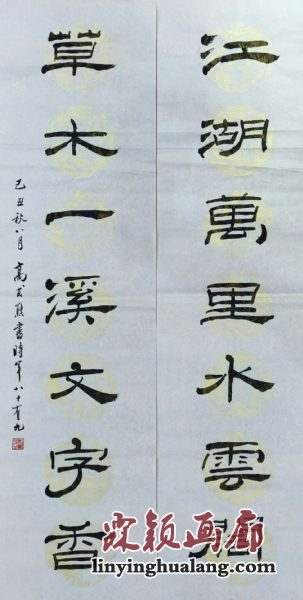 江湖萬里水雲
草木一溪文字香
己丑秋八月 高式熊書時年八十有九
霖颖画廊
linyinghualang.com